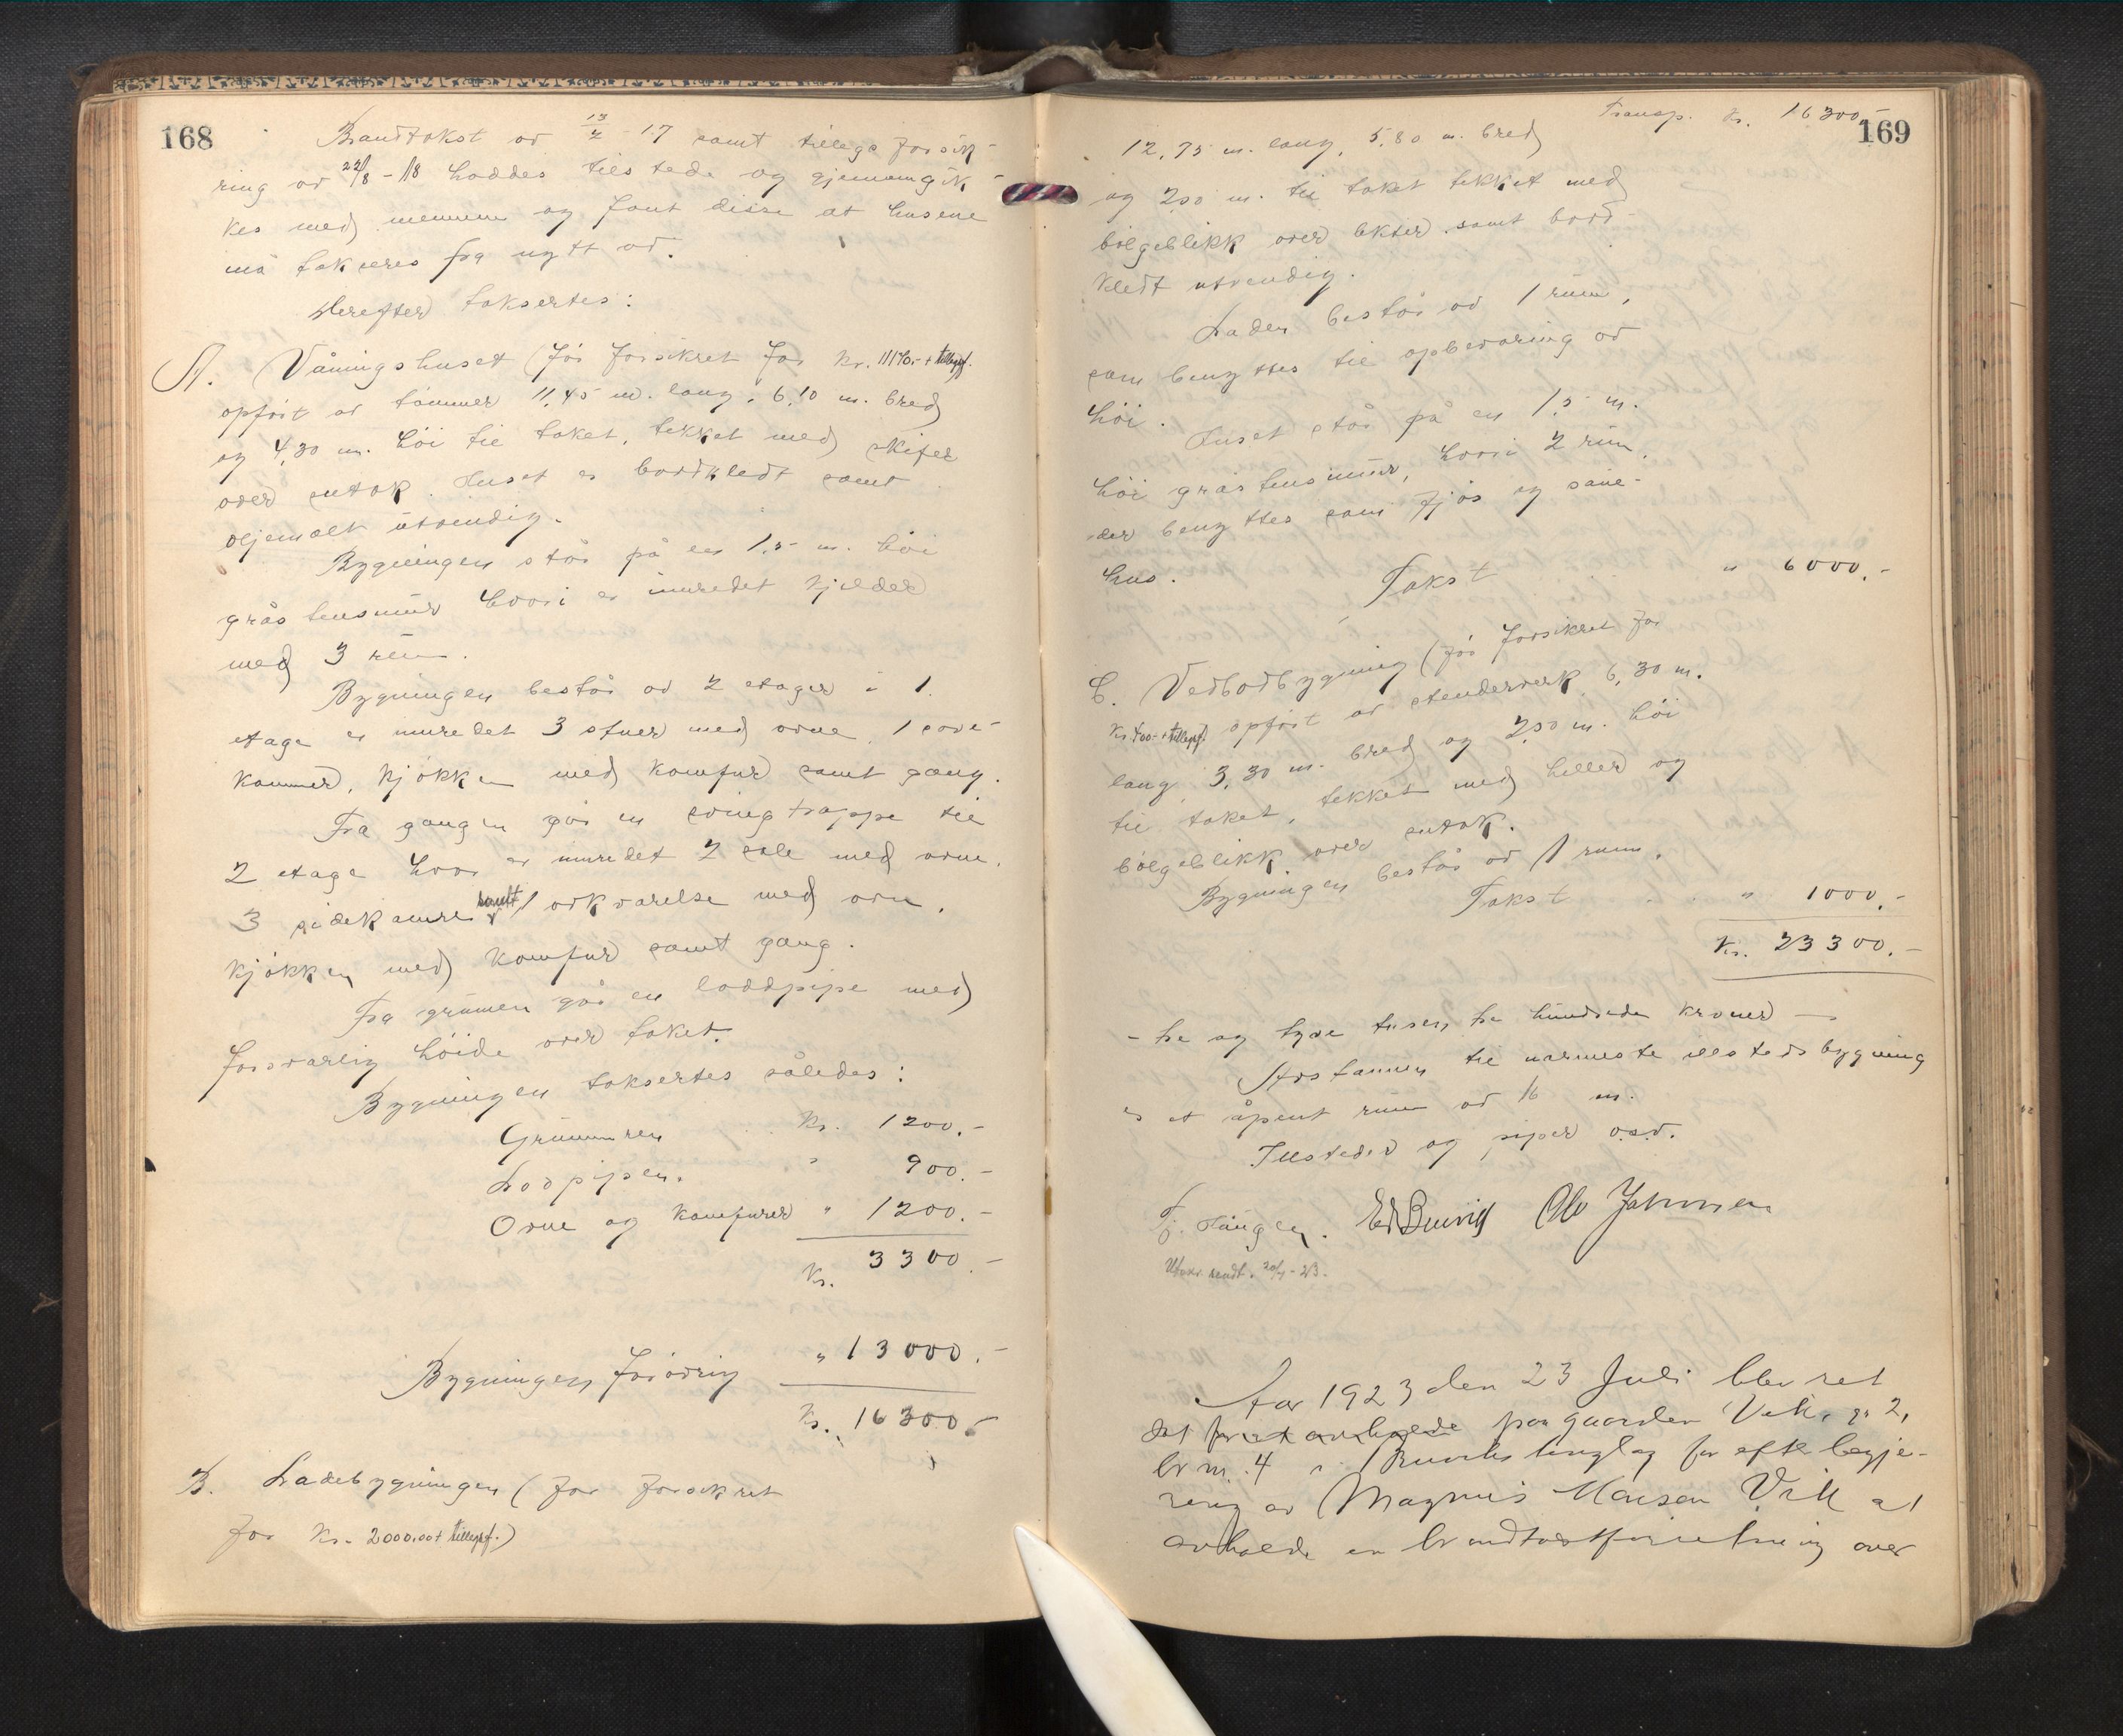 168
Brandtakst av 13/2 17 samt tillegs forsik-
ring av 22/8 - 18 haddes tilstede og gjennemgik-
kes med mennene og fant disse at husene
må takseres fra nytt av.
Herefter taksertes:
A. Våningshuset (før forsikret for kr. 11170.- + tillegsf.
opført av tømmer 11,45 m. lang, 6,10 m. bred
og 4,30 m. høi til taket, tekket med skifer
over sutak. Huset er bordkledt samt
oljemalt utvendig.
Bygningen står på en 1,5 m. høi
gråstensmur hvori er innredet kjelder
med 3 rum.
Bygningen består av 2 etager i 1.
etage er innredet 3 stuer med ovne, 1 sove-
kammer, kjøkken med komfur samt gang.
Fra gangen går en svingtrappe til
2 etage hvor er innredet 2 sale med ovne,
3 sidekamre samt 1 arkværelse med ovn,
kjøkken med komfur samt gang.
Fra grunnen går en loddpipe med
forsvarlig høide over taket.
Bygningen taksertes således:
Grunnmuren kr. 1200.-
Lodpipen. " 900.-
Ovne og komfurer " 1200.-
Kr. 3300.-
Bygningen forøvrig " 13000.-
Kr. 16300.-
B. Ladebygningen (før forsikret
for kr. 2000.00 + tillegsf.)
169
Transp. Kr. 16300.-
12,75 m. lang, 5,80 m. bred
og 2,00 m. til taket tekket med
bølgeblikk over lekter samt bord-
kledt utvendig.
Laden består av 1 rum,
som benyttes til opbevaring av
høi.
Huset står på en 1,5 m.
høi gråstensmur, hvori 2 rum,
der benyttes som fjøs og saue-
hus.
Takst " 6000.-
C. Vedbodbygning (før forsikret for
kr. 400.- + tillegsf. opført av stenderverk 6,30 m.
lang, 3,30 m. bred og 2,00 m. høi
til taket, tekket med heller og
bølgeblikk over sutak.
Bygningen består av 1 rum.
Takst " 1000.-
Kr. 23300.-
- tre og tyve tusen tre hundrede kroner -
Avstannen til nærmeste ildstedsbygning
er et åpent rum av 16 m.
Illsteder og piper o.s.v.
Tj. Haugen. Ed Bruvik Olav Johnnsen
Utskr. sendt. 20/7 - 23.
Aar 1923 den 23 Juli blev ret
sat for at avholde paa gaarden Vik, gr 2,
br nr. 4 i Bruviks tinglag for efter begje-
ring av Magnus Monsen Vik at
avholde en brandtakstforretning over